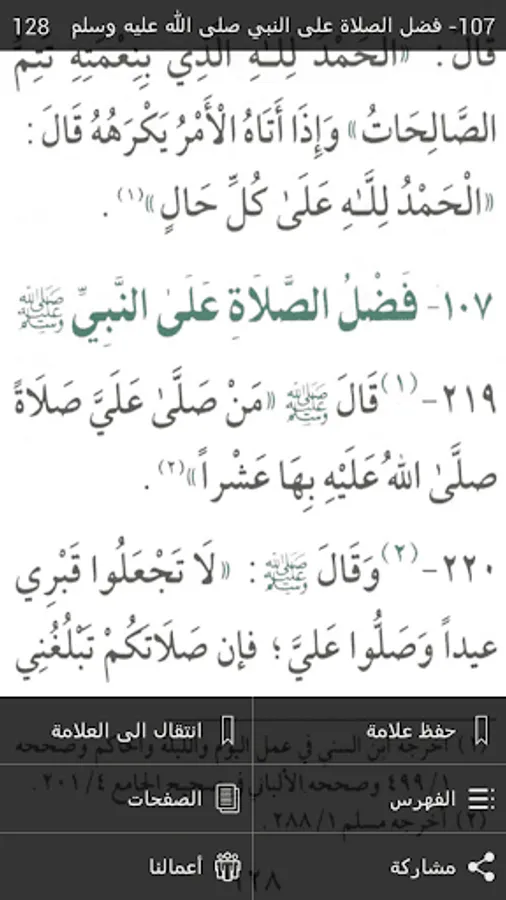 107- فضل الصلاة على النبي صلى الله عليه وسلم 128
قَالَ: «الْحَمْدُ لِلَّهِ الَّذِي بِنِعْمَتِهِ تَتِمُّ
الصَّالِحَاتُ» وَإِذَا أَتَاهُ الْأَمْرُ يَكْرَهُهُ قَالَ:
«الْحَمْدُ لِلَّهِ عَلَىٰ كُلِّ حَالٍ»(١).
١٠٧- فَضْلُ الصَّلَاةِ عَلَىٰ النَّبِيِّ ﷺ
٢١٩-(١) قَالَ ﷺ «مَنْ صَلَّىٰ عَلَيَّ صَلَاةً
صلَّىٰ اللهُ عَلَيْهِ بِهَا عَشْراً»(٢).
٢٢٠-(٢) وَقَالَ ﷺ: «لَا تَجْعَلُوا قَبْرِي
عيداً وَصَلُّوا عَليَّ؛ فإن صَلَاتَكُمْ تَبْلُغُنِي
حفظ علامة
انتقال الى العلامة
(١) أخرجه ابن السني في عمل اليوم والليلة والحاكم وصححه
١/ ٤٩٩ وصححه الألباني في صحيح الجامع ٤/ ٢٠١.
الفهرس
الصفحات
(٢) أخرجه مسلم ١/ ٢٨٨.
مشاركة
أعمالنا
١٢٨